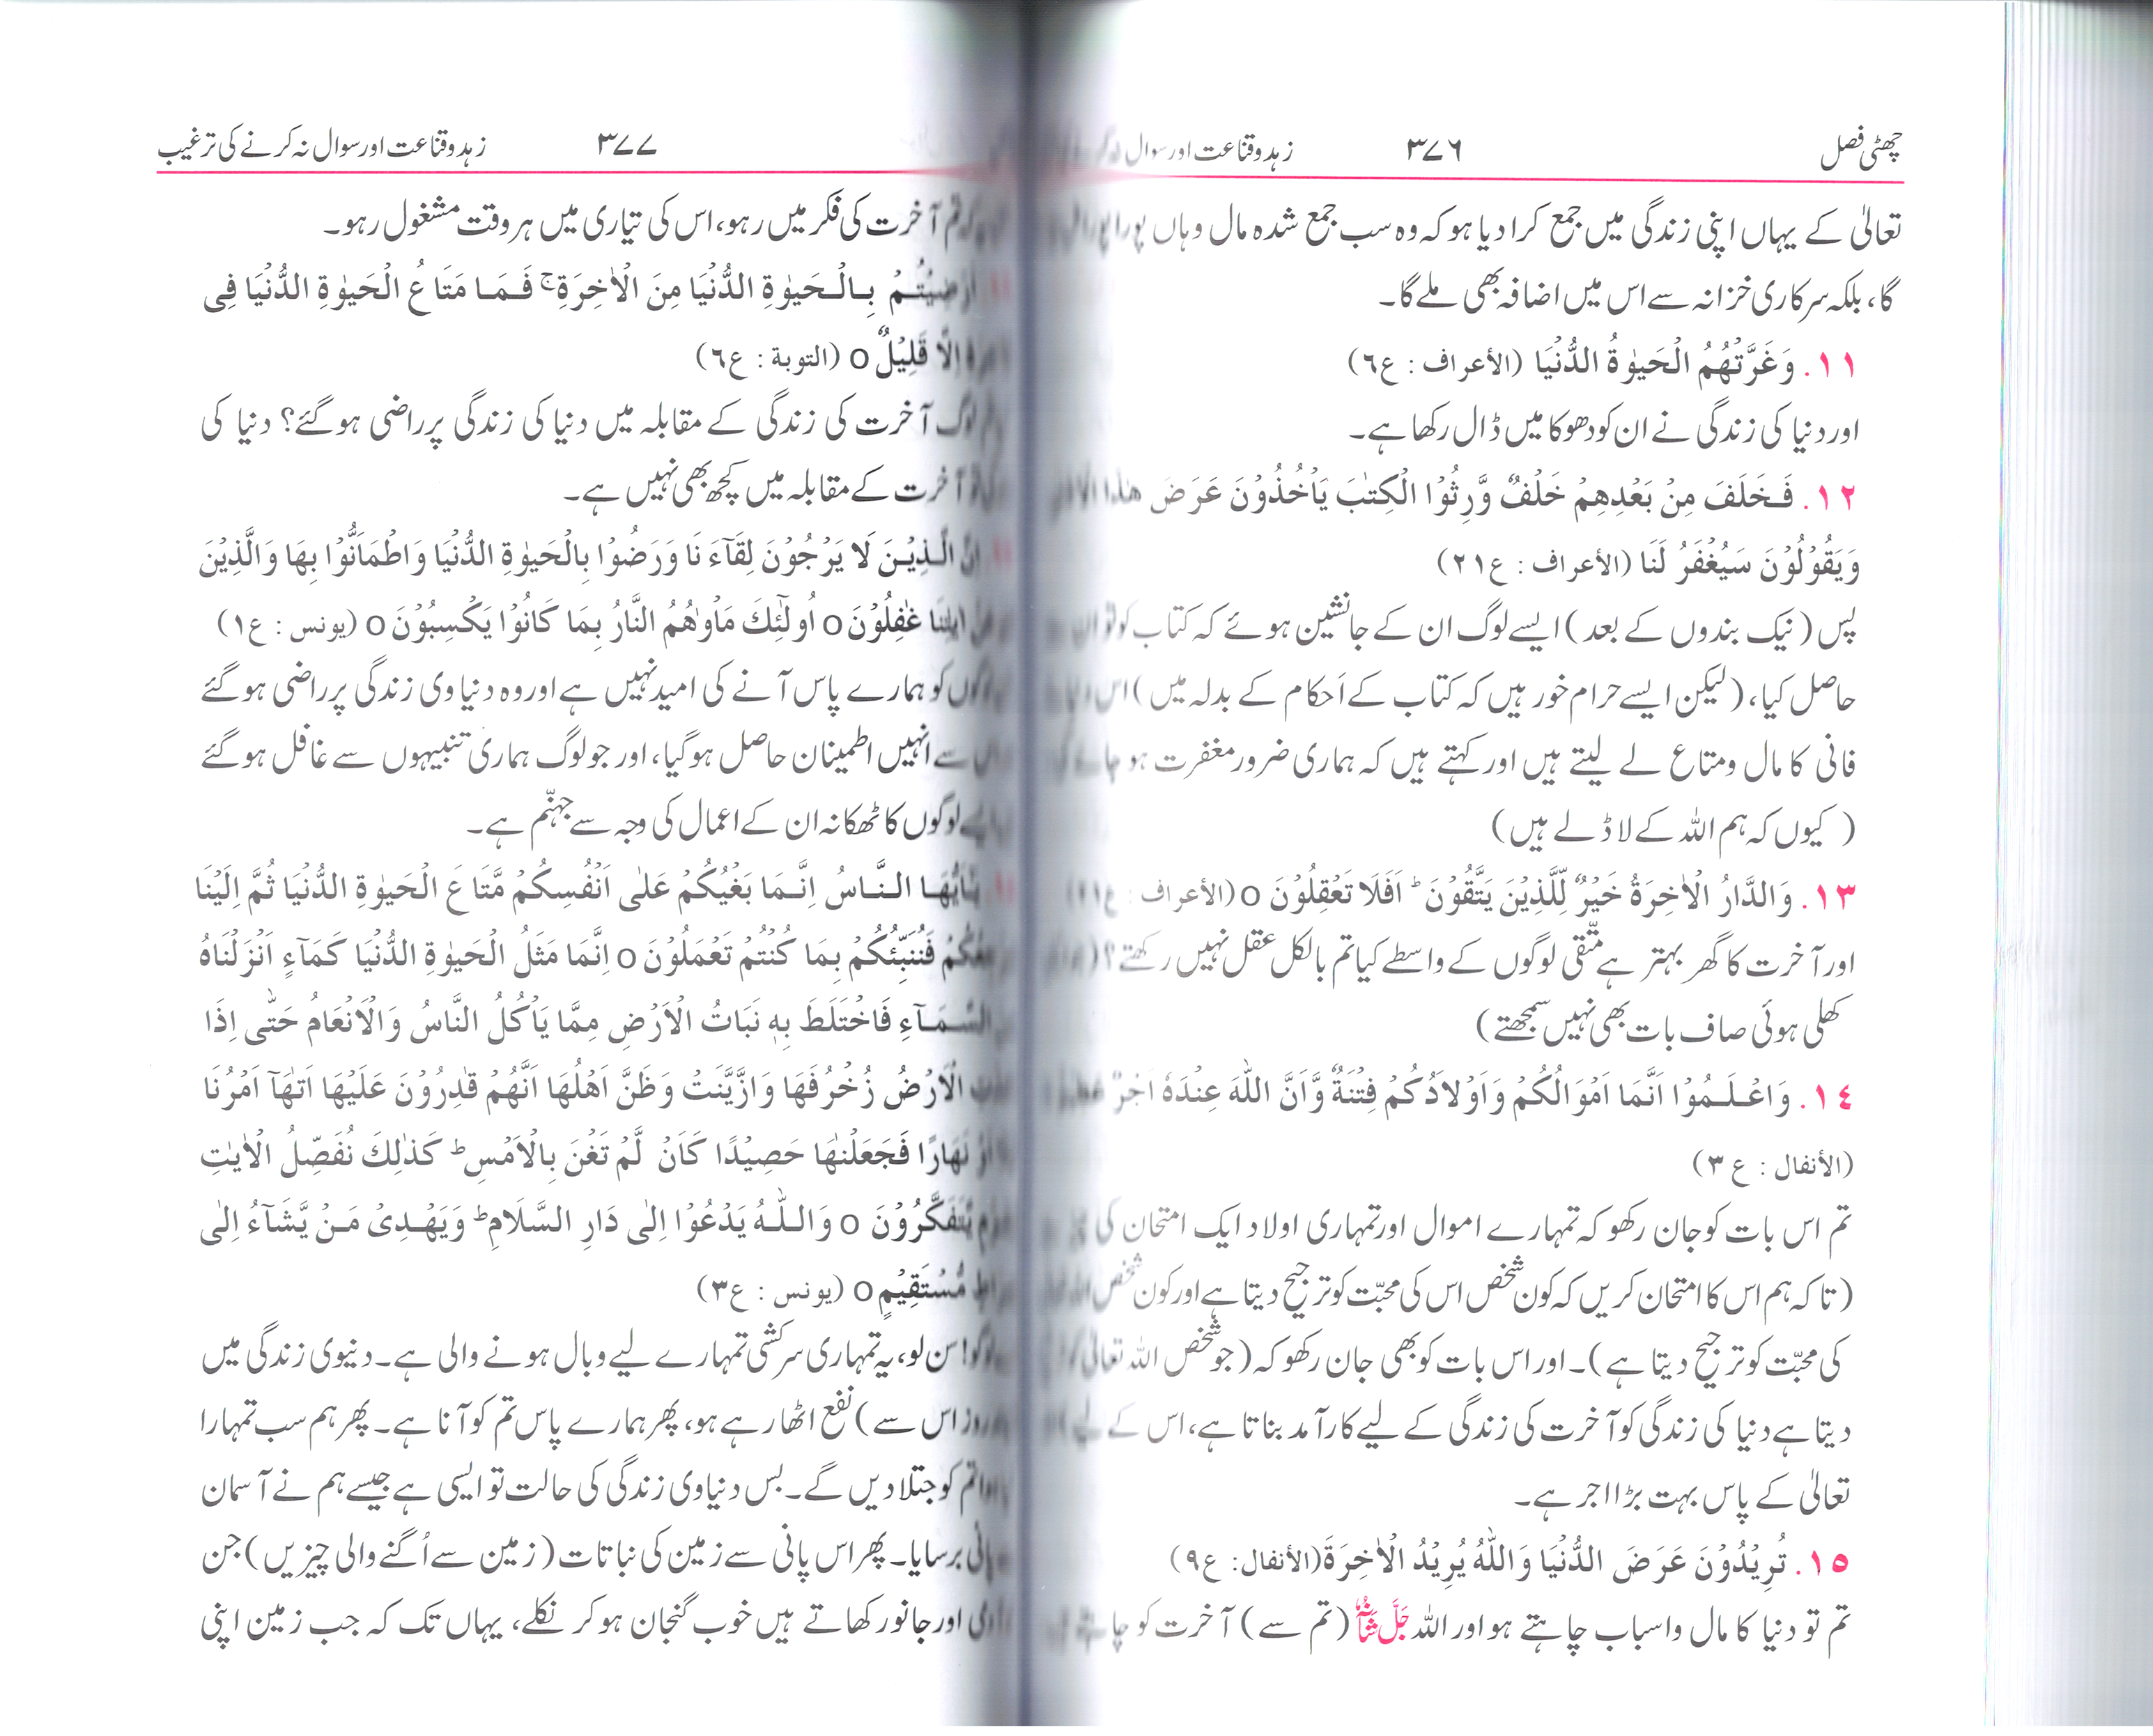 چھٹی فصل
٣٧٦
زہد وقناعت اور سوال نہ کر
تعالیٰ کے یہاں اپنی زندگی میں جمع کرا دیا ہو کہ وہ سب جمع شدہ مال وہاں پورا پورا
گا، بلکہ سرکاری خزانہ سے اس میں اضافہ بھی ملے گا۔
١١. وَغَرَّتْهُمُ الْحَيٰوةُ الدُّنْيَا (الأعراف: ع٦)
اور دنیا کی زندگی نے ان کو دھوکا میں ڈال رکھا ہے۔
١٢. فَخَلَفَ مِنْ بَعْدِهِمْ خَلْفٌ وَّرِثُوا الْكِتٰبَ يَأْخُذُوْنَ عَرَضَ هٰذَا
وَيَقُوْلُوْنَ سَيُغْفَرُ لَنَا (الأعراف: ع٢١)
پس (نیک بندوں کے بعد) ایسے لوگ ان کے جانشین ہوئے کہ کتاب کو تو
حاصل کیا، (لیکن ایسے حرام خور ہیں کہ کتاب کے اَحکام کے بدلہ میں) اس
فانی کا مال ومتاع لے لیتے ہیں اور کہتے ہیں کہ ہماری ضرور مغفرت ہو جائے
(کیوں کہ ہم اللہ کے لاڈلے ہیں)
١٣. وَالدَّارُ الْاٰخِرَةُ خَيْرٌ لِّلَّذِيْنَ يَتَّقُوْنَ ؕ اَفَلَا تَعْقِلُوْنَ o (الأعراف: ع٢١)
اور آخرت کا گھر بہتر ہے متّقی لوگوں کے واسطے کیا تم بالکل عقل نہیں رکھتے؟
کھلی ہوئی صاف بات بھی نہیں سمجھتے)
١٤. وَاعْلَمُوْا اَنَّمَا اَمْوَالُكُمْ وَاَوْلَادُكُمْ فِتْنَةٌ وَّاَنَّ اللّٰهَ عِنْدَهٗ اَجْرٌ
(الأنفال: ع ٣)
تم اس بات کو جان رکھو کہ تمہارے اموال اور تمہاری اولاد ایک امتحان کی
(تاکہ ہم اس کا امتحان کریں کہ کون شخص اس کی محبّت کو ترجیح دیتا ہے اور کون شخص
کی محبّت کو ترجیح دیتا ہے)۔ اور اس بات کو بھی جان رکھو کہ (جو شخص اللہ تعالیٰ
دیتا ہے دنیا کی زندگی کو آخرت کی زندگی کے لیے کارآمد بناتا ہے، اس کے لیے)
تعالیٰ کے پاس بہت بڑا اجر ہے۔
١٥. تُرِيْدُوْنَ عَرَضَ الدُّنْيَا وَاللّٰهُ يُرِيْدُ الْاٰخِرَةَ (الأنفال: ع٩)
تم تو دنیا کا مال واسباب چاہتے ہو اور اللہ جَلَّ شَأْنُہٗ (تم سے) آخرت کو چاہتے
٣٧٧
زہد وقناعت اور سوال نہ کرنے کی ترغیب
تم آخرت کی فکر میں رہو، اس کی تیاری میں ہر وقت مشغول رہو۔
اَرَضِيْتُمْ بِالْحَيٰوةِ الدُّنْيَا مِنَ الْاٰخِرَةِ ۚ فَمَا مَتَاعُ الْحَيٰوةِ الدُّنْيَا فِى
اِلَّا قَلِيْلٌ o (التوبة: ع٦)
لوگ آخرت کی زندگی کے مقابلہ میں دنیا کی زندگی پر راضی ہو گئے؟ دنیا کی
آخرت کے مقابلہ میں کچھ بھی نہیں ہے۔
اِنَّ الَّذِيْنَ لَا يَرْجُوْنَ لِقَآءَنَا وَرَضُوْا بِالْحَيٰوةِ الدُّنْيَا وَاطْمَاَنُّوْا بِهَا وَالَّذِيْنَ
اٰيٰتِنَا غٰفِلُوْنَ o اُولٰٓئِكَ مَاْوٰهُمُ النَّارُ بِمَا كَانُوْا يَكْسِبُوْنَ o (يونس: ع١)
کو ہمارے پاس آنے کی امید نہیں ہے اور وہ دنیاوی زندگی پر راضی ہو گئے
سے انہیں اطمینان حاصل ہو گیا، اور جو لوگ ہماری تنبیہوں سے غافل ہو گئے
لوگوں کا ٹھکانہ ان کے اعمال کی وجہ سے جہنّم ہے۔
يٰٓاَيُّهَا النَّاسُ اِنَّمَا بَغْيُكُمْ عَلٰى اَنْفُسِكُمْ مَّتَاعَ الْحَيٰوةِ الدُّنْيَا ثُمَّ اِلَيْنَا
فَنُنَبِّئُكُمْ بِمَا كُنْتُمْ تَعْمَلُوْنَ o اِنَّمَا مَثَلُ الْحَيٰوةِ الدُّنْيَا كَمَآءٍ اَنْزَلْنَاهُ
السَّمَآءِ فَاخْتَلَطَ بِهٖ نَبَاتُ الْاَرْضِ مِمَّا يَاْكُلُ النَّاسُ وَالْاَنْعَامُ حَتّٰى اِذَا
الْاَرْضُ زُخْرُفَهَا وَازَّيَّنَتْ وَظَنَّ اَهْلُهَا اَنَّهُمْ قٰدِرُوْنَ عَلَيْهَا اَتٰهَآ اَمْرُنَا
اَوْ نَهَارًا فَجَعَلْنٰهَا حَصِيْدًا كَاَنْ لَّمْ تَغْنَ بِالْاَمْسِ ؕ كَذٰلِكَ نُفَصِّلُ الْاٰيٰتِ
يَّتَفَكَّرُوْنَ o وَاللّٰهُ يَدْعُوْا اِلٰى دَارِ السَّلَامِ ؕ وَيَهْدِىْ مَنْ يَّشَآءُ اِلٰى
مُّسْتَقِيْمٍ o (يونس: ع٣)
لوگو! سن لو، یہ تمہاری سرکشی تمہارے لیے وبال ہونے والی ہے۔ دنیوی زندگی میں
روز اس سے) نفع اٹھا رہے ہو، پھر ہمارے پاس تم کو آنا ہے۔ پھر ہم سب تمہارا
تم کو جتلا دیں گے۔ بس دنیاوی زندگی کی حالت تو ایسی ہے جیسے ہم نے آسمان
پانی برسایا۔ پھر اس پانی سے زمین کی نباتات (زمین سے اُگنے والی چیزیں) جن
اور جانور کھاتے ہیں خوب گنجان ہو کر نکلے، یہاں تک کہ جب زمین اپنی